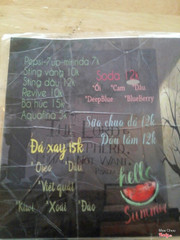 Pepsi-7up-mirinda 7k
Sting vàng 10k
Sting dâu 12k
Revive 10k
Bò húc 15k
Aquafina 5k
Đá xay 15k
*Oreo *Dâu
*Việt quất
*Kiwi *Xoài *Đào
Soda
*Ổi *Cam *Dâu
*DeepBlue *BlueBerry
Sữa chua đá 12k
Dâu tằm 12k
hello
Summer